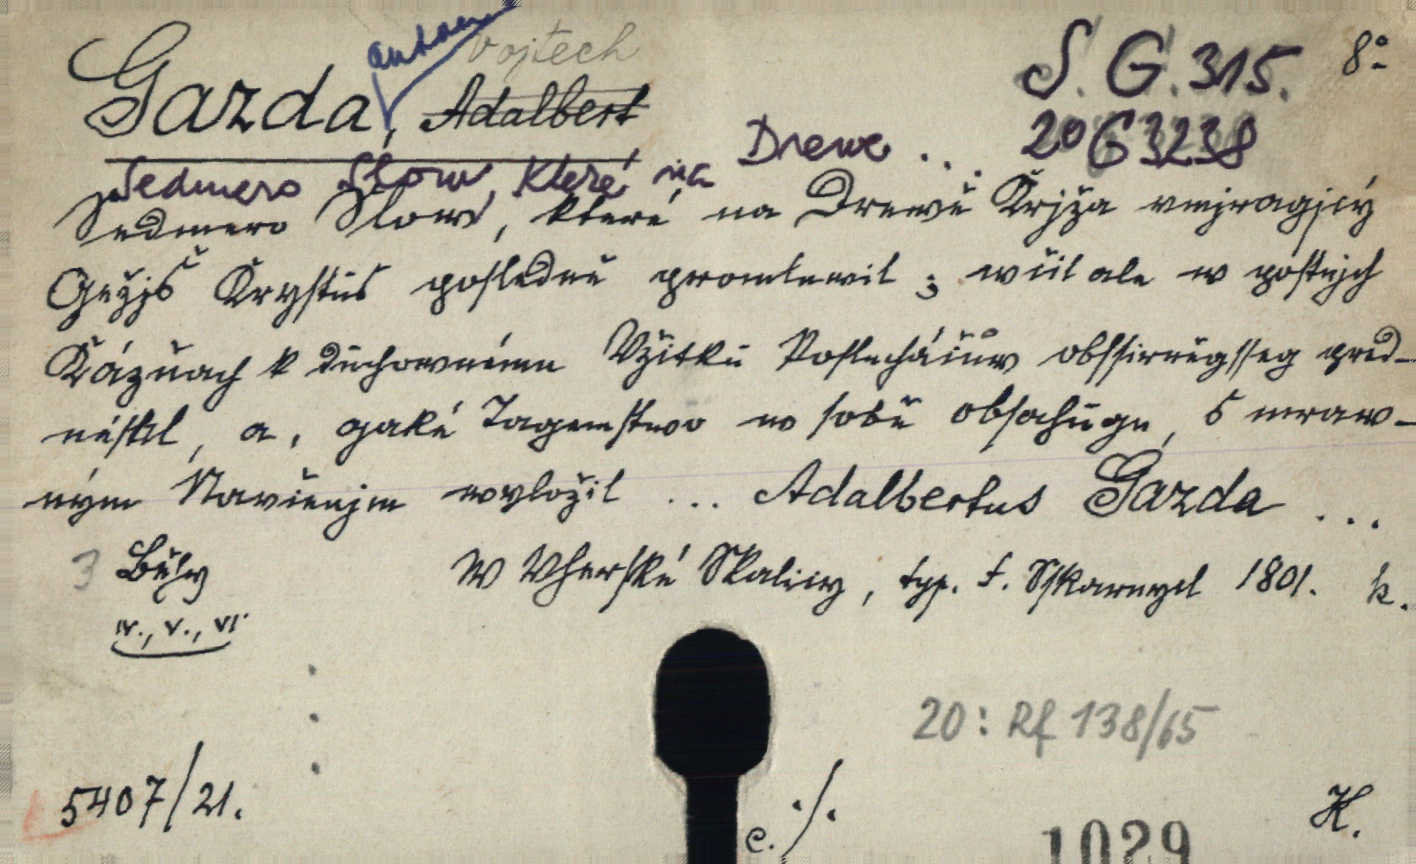 Vojtech
Gazda, Adalbert
S. G. 315. 8°
20 G 3238
Sedmero Slow, které na Drewe ...
Sedmero Slow, které na Drewě Křjža vmjragjcý
Gežjš Krystus posledně promluwil; w ale w postnjch
Kázňach k duchownému Vžitku Posluchačůw obssirněgsseg pred-
nésel, a, gaké Tagemstwo w sobě obsahugu, s mraw-
ným Naučenjm wyložil ... Adalbertus Gazda ...
3
W Vherské Skalicy, typ. f. Sskarnycl 1801. k.
IV., V., VI.
20: Rf 138/65
5407/21.
c. ./. H.
1029